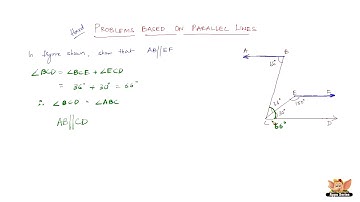 Hard PROBLEMS BASED ON PARALLEL LINES
In figure shown, show that AB//EF
∠BCD = ∠BCE + ∠ECD
= 36° + 30° = 66°
∴ ∠BCD = ∠ABC
AB//CD
A B
66°
E F
36° 150°
30°
C D
66°